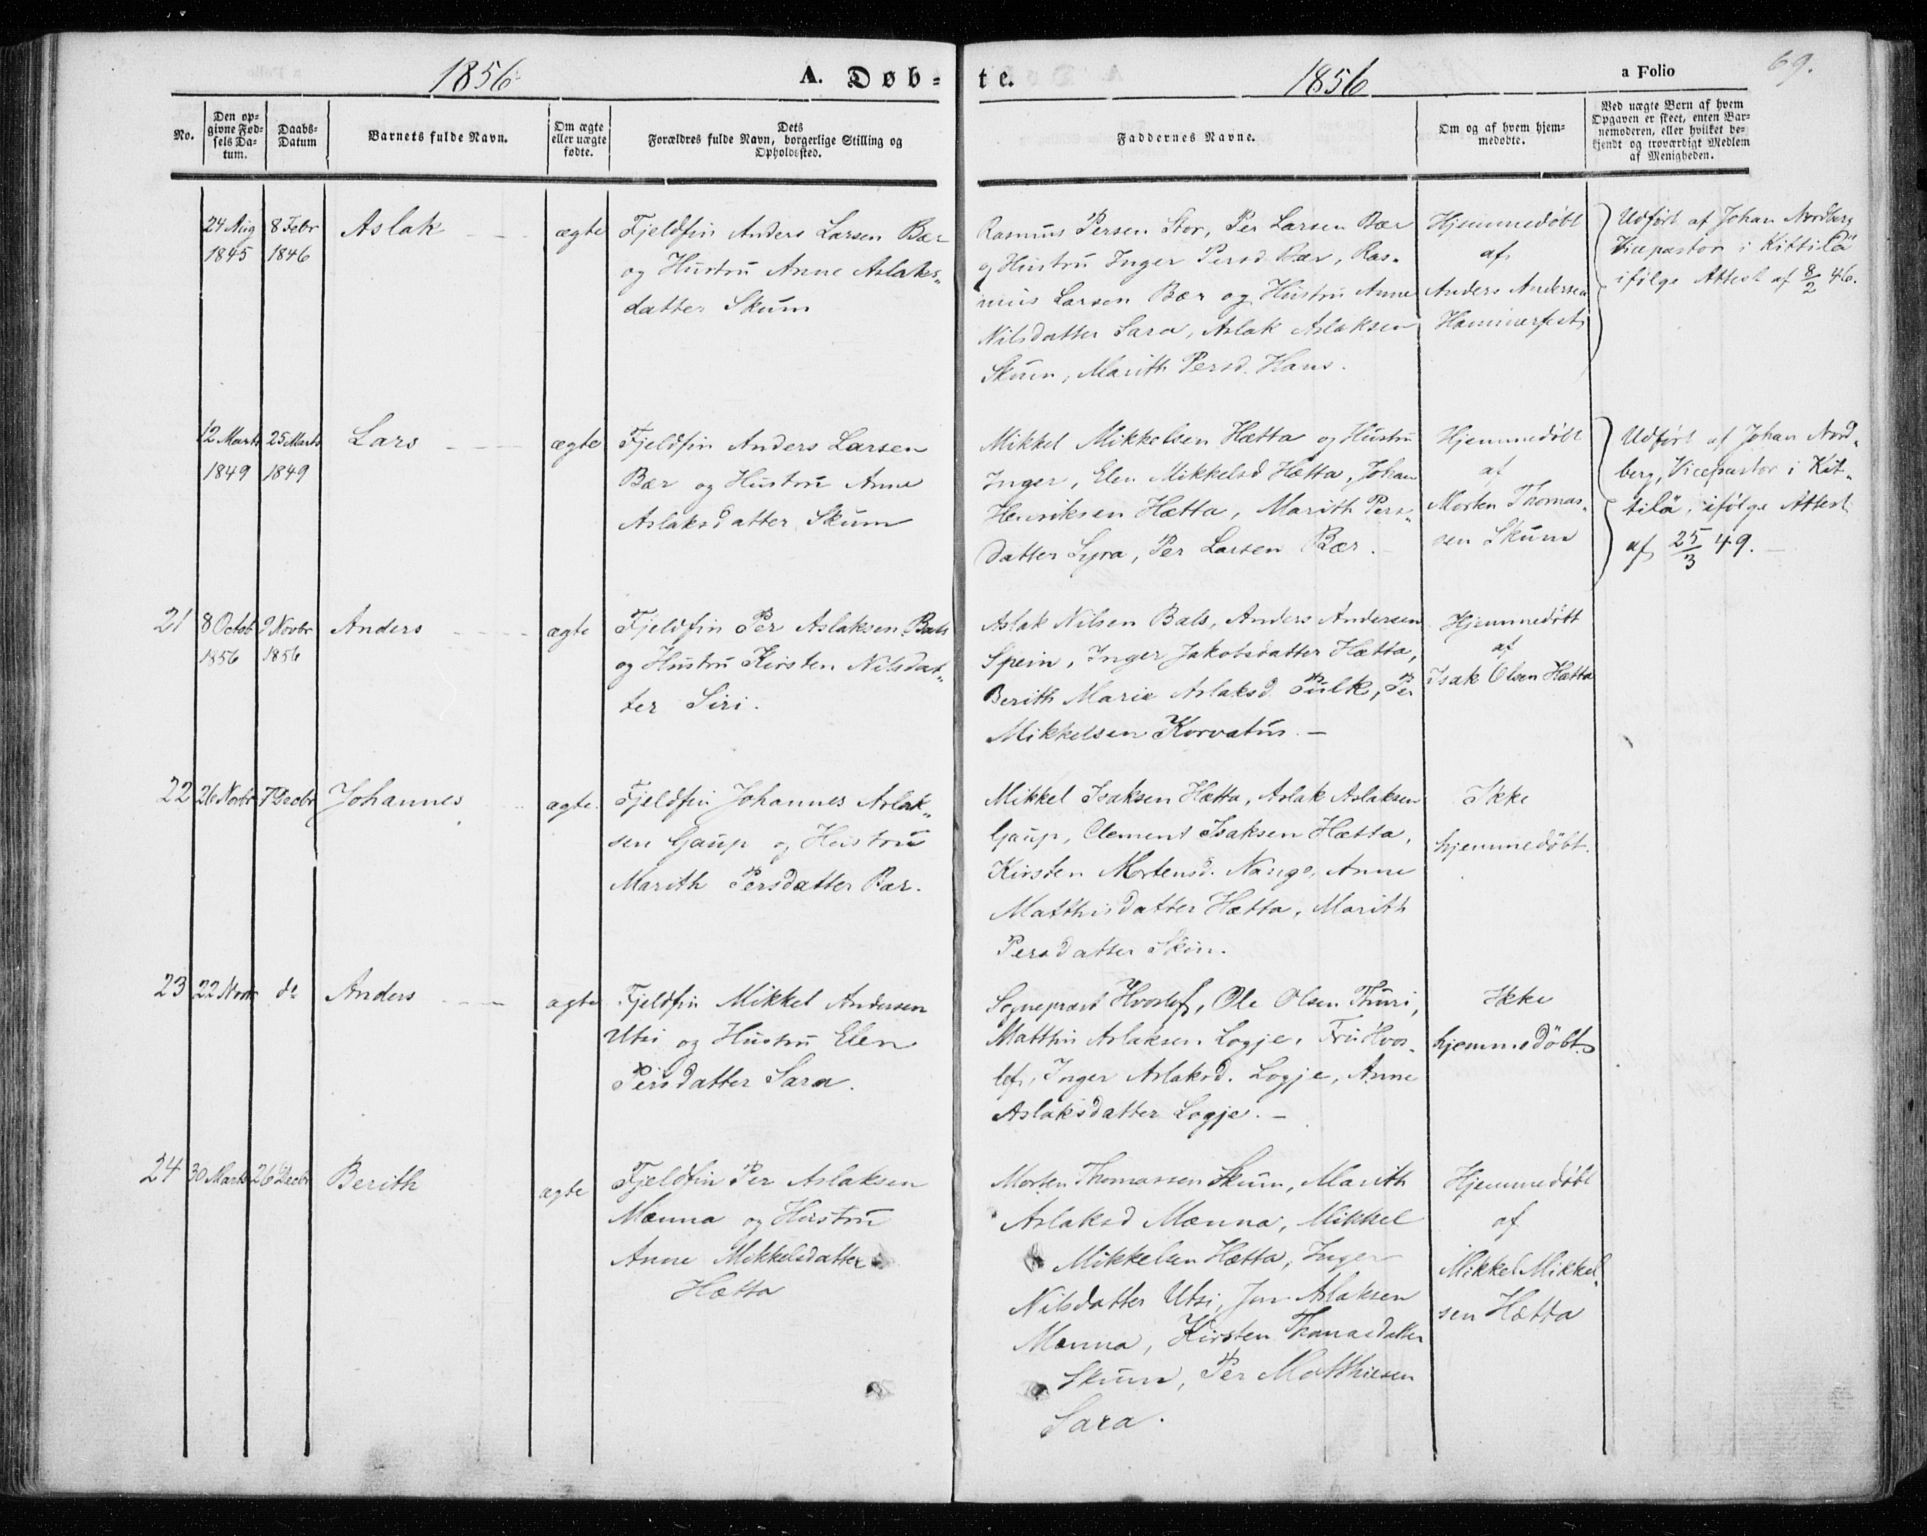 1856 A. Døb= te. 1856 a Folio 69.
No.
Den op-
givne Fød-
sels Da-
tum.
Daabs-
Datum
Barnets fulde Navn.
Om ægte
eller uægte
fødte.
Dets
Forældres fulde Navn, borgerlige Stilling og
Opholdssted.
Faddernes Navne.
Om og af hvem hjem-
medøbte.
Ved uægte Børn af hvem
Opgaven er skeet, enten Bar-
nemoderen, eller hvilket be-
kjendt og troværdigt Medlem
af Menigheden.
24 Aug
1845
8 Febr
1846
Aslak
ægte
Fjeldfin Anders Larsen Bær
og Hustru Anne Aslaks-
datter Skum
Rasmus Persen Stor, Per Larsen Bær
og Hustru Inger Persd. Bær, Ras-
mus Larsen Bær og Hustru Anne
Nilsdatter Sara, Aslak Aslaksen
Skum, Marith Persd. Hans.
Hjemmedøbt
af
Anders Andersen
Hammerfest
Udført af Johan Nordberg
Vicepastor i Kittilä
ifølge Attest af 8/2 46.
12 Marts
1849
25 Marts
1849
Lars
ægte
Fjeldfin Anders Larsen
Bær og Hustru Anne
Aslaksdatter Skum
Mikkel Mikkelsen Hætta og Hustru
Inger, Elen Mikkelsd Hætta, Johan
Henriksen Hætta, Marith Pers-
datter Syra, Per Larsen Bær.
Hjemmedøbt
af
Morten Thomas-
sen Skum
Udført af Johan Nord-
berg, Vicepastor i Kit-
tilä, ifølge Attest
af 25/3 49.
21
8 Octob
1856
9 Novbr
1856
Anders
ægte
Fjeldfin Per Aslaksen Bals
og Hustru Kirsten Nilsdat-
ter Siri.
Aslak Nilsen Bals, Anders Andersen
Spein, Inger Jakobsdatter Hætta,
Berith Marie Aslaksd. Pulk, Per
Mikkelsen Korvatus. —
Hjemmedøbt
af
Isak Olsen Hætta
22
26 Novbr
7 Decbr
Johannes
ægte
Fjeldfin Johannes Aslak-
sen Gaup og Hustru
Marith Persdatter Bær.
Mikkel Isaksen Hætta, Aslak Aslaksen
Gaup, Clement Isaksen Hætta,
Kirsten Mortensd. Nango, Anne
Matthisdatter Hætta, Marith
Persdatter Skum.
Ikke
hjemmedøbt.
23
22 Novbr
do
Anders
ægte
Fjeldfin Mikkel Andersen
Utsi og Hustru Elen
Persdatter Sara.
Sognepræst Hvoslef, Ole Olsen Thuri,
Matthis Aslaksen Logje, Fru Hvos-
lef, Inger Aslaksd. Logje, Anne
Aslaksdatter Logje. —
Ikke
hjemmedøbt
24
30 Marts
26 Decbr
Berith
ægte
Fjeldfin Per Aslaksen
Mænna og Hustru
Anne Mikkelsdatter
Hætta
Morten Thomassen Skum, Marith
Aslaksd Mænna, Mikkel
Mikkelsen Hætta, Inger
Nilsdatter Utsi, Jon Aslaksen
Mænna, Kirsten Thomasdatter
Skum, Per Matthisen
Sara.
Hjemmedøbt
af
Mikkel Mikkel-
sen Hætta